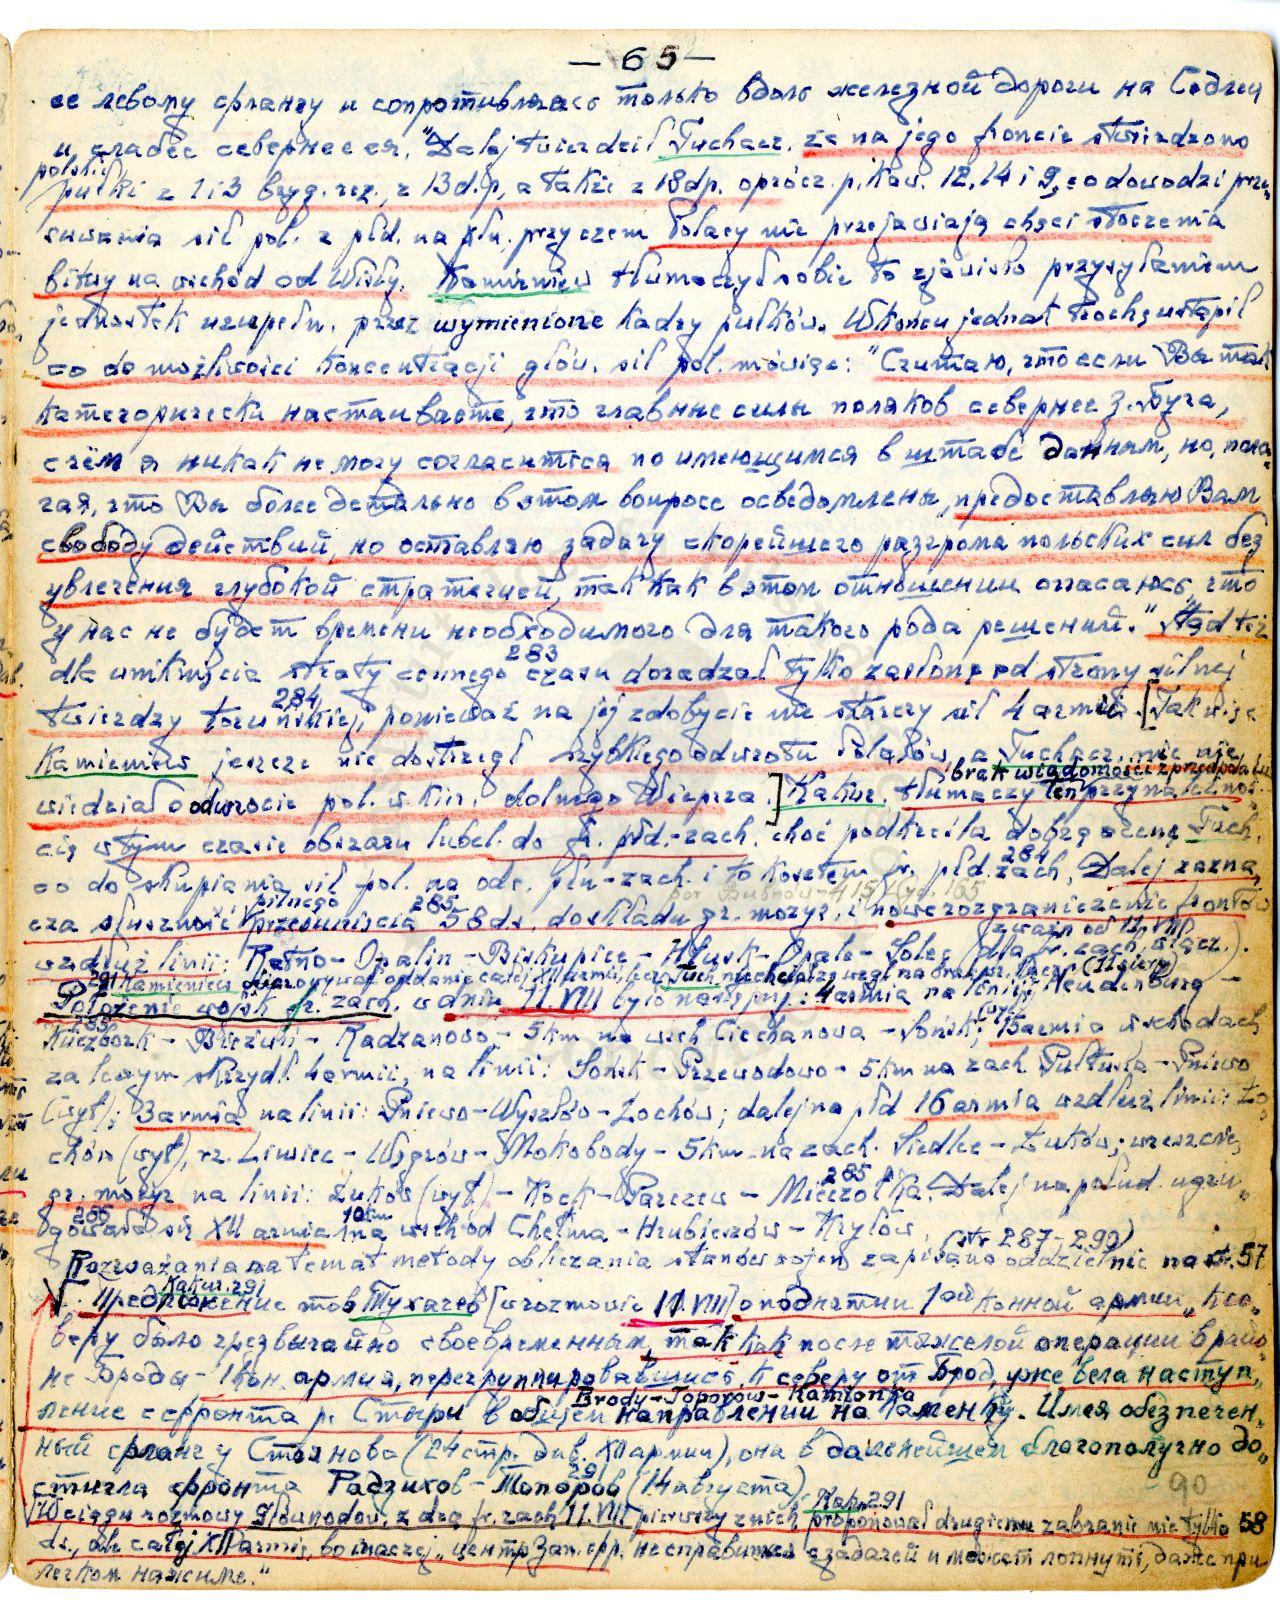 — 65 —
ее левому флангу и сопротивляясь только вдоль железной дороги на Седлец
и слабее севернее ея. "Dalej twierdził Tuchacz. że na jego froncie stwierdzono
polskie
pułki z 1 i 3 bryg. rez., z 13 dp, a także z 18 dp. oprócz p. kaw. 12, 14 i 9, co dowodzi prze-
suwania sił pol. z płd. na płn. przyczem Polacy nie przejawiają chęci stoczenia
bitwy na wschód od Wisły. Kamieniew tłumaczył sobie to zjawisko przysyłaniem
jednostek uzupełn. przez wymienione kadry pułków. W końcu jednak trochę ustąpił
co do możliwości koncentracji głów. sił pol. mówiąc: "Считаю, что если Вы так
категорически настаиваете, что главные силы поляков севернее З. Буга,
с чём я никак не могу согласиться по имеющимся в штабе данным, но, пола-
гая, что Вы более детально в этом вопросе осведомлены, предоставляю Вам
свободу действий, но оставляю задачу скорейшего разгрома польских сил без
увлечения глубокой стратегией, так как в этом отношении опасаюсь, что
у нас не будет времени необходимого для такого рода решений." Stąd też
283
dla uniknięcia straty cennego czasu doradzał tylko zasłonę od strony silnej
284
twierdzy toruńskiej, ponieważ na jej zdobycie nie starczy sił 4 armii. [Tak więc
Kamieniew jeszcze nie dostrzegł szybkiego odwrotu Polaków, a Tuchacz. nic nie
brak wiadomości z przedpola Lu
wiedział o odwrocie pol. w kier. dolnego Wieprza.] Kakur. tłumaczy ten przynależnoś-
cią w tym czasie obszaru lubel. do fr. płd.-zach. choć podkreśla dobrą ocenę Tuch.
284
co do skupiania sił pol. na odc. płn-zach. i to kosztem fr. płd. zach. Dalej zazna-
por Bubnow - 415 i Kyc. 165
pilnego 285
cza słuszność przesunięcia 58 ds. do składu gr. mozyr. i nowe rozgraniczenie frontów
wzdłuż linii: Ratno - Opalin - Biskupice - - Opale - Solec (dla fr. zach. włącz.).
291 Kamieniew całej XII armii, lecz Tuch. nie chciał ze wzgl. na brak śr. łączn. (11 sierp)
Położenie wojsk fr. zach. w dniu 11. VIII było nast. przy: 4 armia na linii: Neudenburg -
285
Kuczbork - Bieżuń - Radzanowo - 5 km na wsch Ciechanowa - Sońsk; 15 armia w schodach
za lewym skrzydł. 4 armii, na linii: Sońsk - Przewodowo - 5 km na zach Pułtuska - Pniewo
(wył); 3 armia na linii: Pniewo - Wyszków - Łochów; dalej na płd 16 armia wzdłuż linii: Ło-
chów (wył), rz. Liwiec - Węgrów - Mokobody - 5 km na zach. Siedlec - Łuków; wreszcie
285
gr. mozyr na linii: Łuków (wył) - Kock - Parczew - Dalej na połud. ugru-
286 10 km
powała się XII armia na wschód Chełma - Hrubieszów - Kryłów.
(str 287-290)
Rozważania na temat metody obliczania stanów wojen zapisano oddzielnie na st. 57
Kakur. 291
V. Предложение тов Тухачев [w rozmowie 11. VIII] о поднятии 1ой Конной армии, к се-
веру было чрезвычайно своевременным, так как после тяжелой операции в райо-
не Броды - 1 Кон. армия, перегруппировавшись, к северу от Брод, уже вела наступ-
Brody - Toporów - Kamionka
ление с фронта р. Стыри в общем направлении на Каменку. Имея обеспечен-
ный фланг у Стоянова (24 стр. див. XII армии), она в дальнейшем благополучно до-
291
стигла фронта Радзихов - Топоров (14 августа).
90
Kak. 291
W ciągu rozmowy głównodow. z dcą fr. zach 11. VIII pierwszy z nich proponował drugiemu zabranie nie tylko 58
ds., ale całej XII armii, bo inaczej „центр Зап. фр. не справится с задачей и может лопнуть, даже при
легком нажиме."